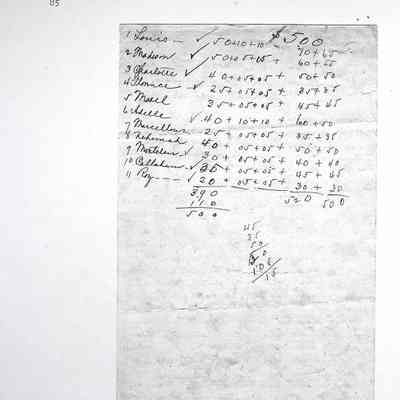 85
$500
1 Louis — ✓ 50+10+10 — 70+65
2 Madison ✓ 50+05+15+ 60+55
3 Charlotte ✓ 40+05+05+ 50+50
4 ✓ 25+05+05+ 35+35
5 Mabel 35+05+05+ 45+45
6 Adelle ✓ 40+10+10+ 60+50
7 Marcellous 25+05+05+ 35+35
8 ✓ 40+05+05+ 50+50
9 ✓ 30+05+05+ 40+40
10 Callahan ✓ 35+05+05+ 45+45
11 Roy — ✓ 20+05+05+ 30+30
390 520 500
110
500
45
35
50
15